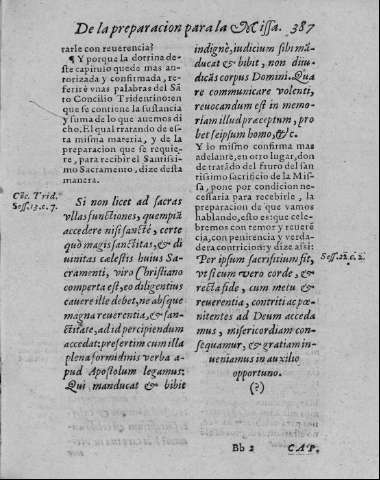 De la preparacion para la Missa. 387
tarle con reuerencia?
¶ Y porque la dotrina de-
ste capitulo quede mas au-
torizada y confirmada, re-
feriré vnas palabras del Sã-
to Concilio Tridentino: en
que se contiene la sustancia
y suma de lo que auemos di
cho. El qual tratando de es-
ta misma materia, y de la
preparacion que se requie-
re, para recibir el Santissi-
mo Sacramento, dize desta
manera.
Cõc. Trid.
Sess. 13. c. 7.
Si non licet ad sacras
vllas functiones, quempiã
accedere nisi sanctè, certe
quò magis sanctitas, & di
uinitas cælestis huius Sa-
cramenti, viro Christiano
comperta est, eo diligentius
cauere ille debet, ne absque
magna reuerentia, & san-
ctitate, ad id percipiendum
accedat: presertim cum illa
plena formidinis verba a-
pud Apostolum legamus:
Qui manducat & bibit
indignè, iudicium sibi mã-
ducat & bibit, non diiu-
dicãs corpus Domini. Qua
re communicare volenti,
reuocandum est in memo-
riam illud præceptum, pro
bet seipsum homo, &c.
Y lo mismo confirma mas
adelante, en otro lugar, don
de tratãdo del fruto del san
tissimo sacrificio de la Mis-
sa, pone por condicion ne-
cessaria para recebirle, la
preparacion de que vamos
hablando, esto es: que cele-
bremos con temor y reuerẽ
cia, con penitencia y verda-
dera contricion: y dize assi:
Per ipsum sacrifitium fit,
Sess. 22. c. 2.
vt si cum vero corde, &
recta fide, cum metu &
reuerentia, contriti ac pœ-
nitentes ad Deum acceda
mus, misericordiam con-
sequamur, & gratiam in-
ueniamus in auxilio
opportuno.
(?)
Bb 2 CAP.